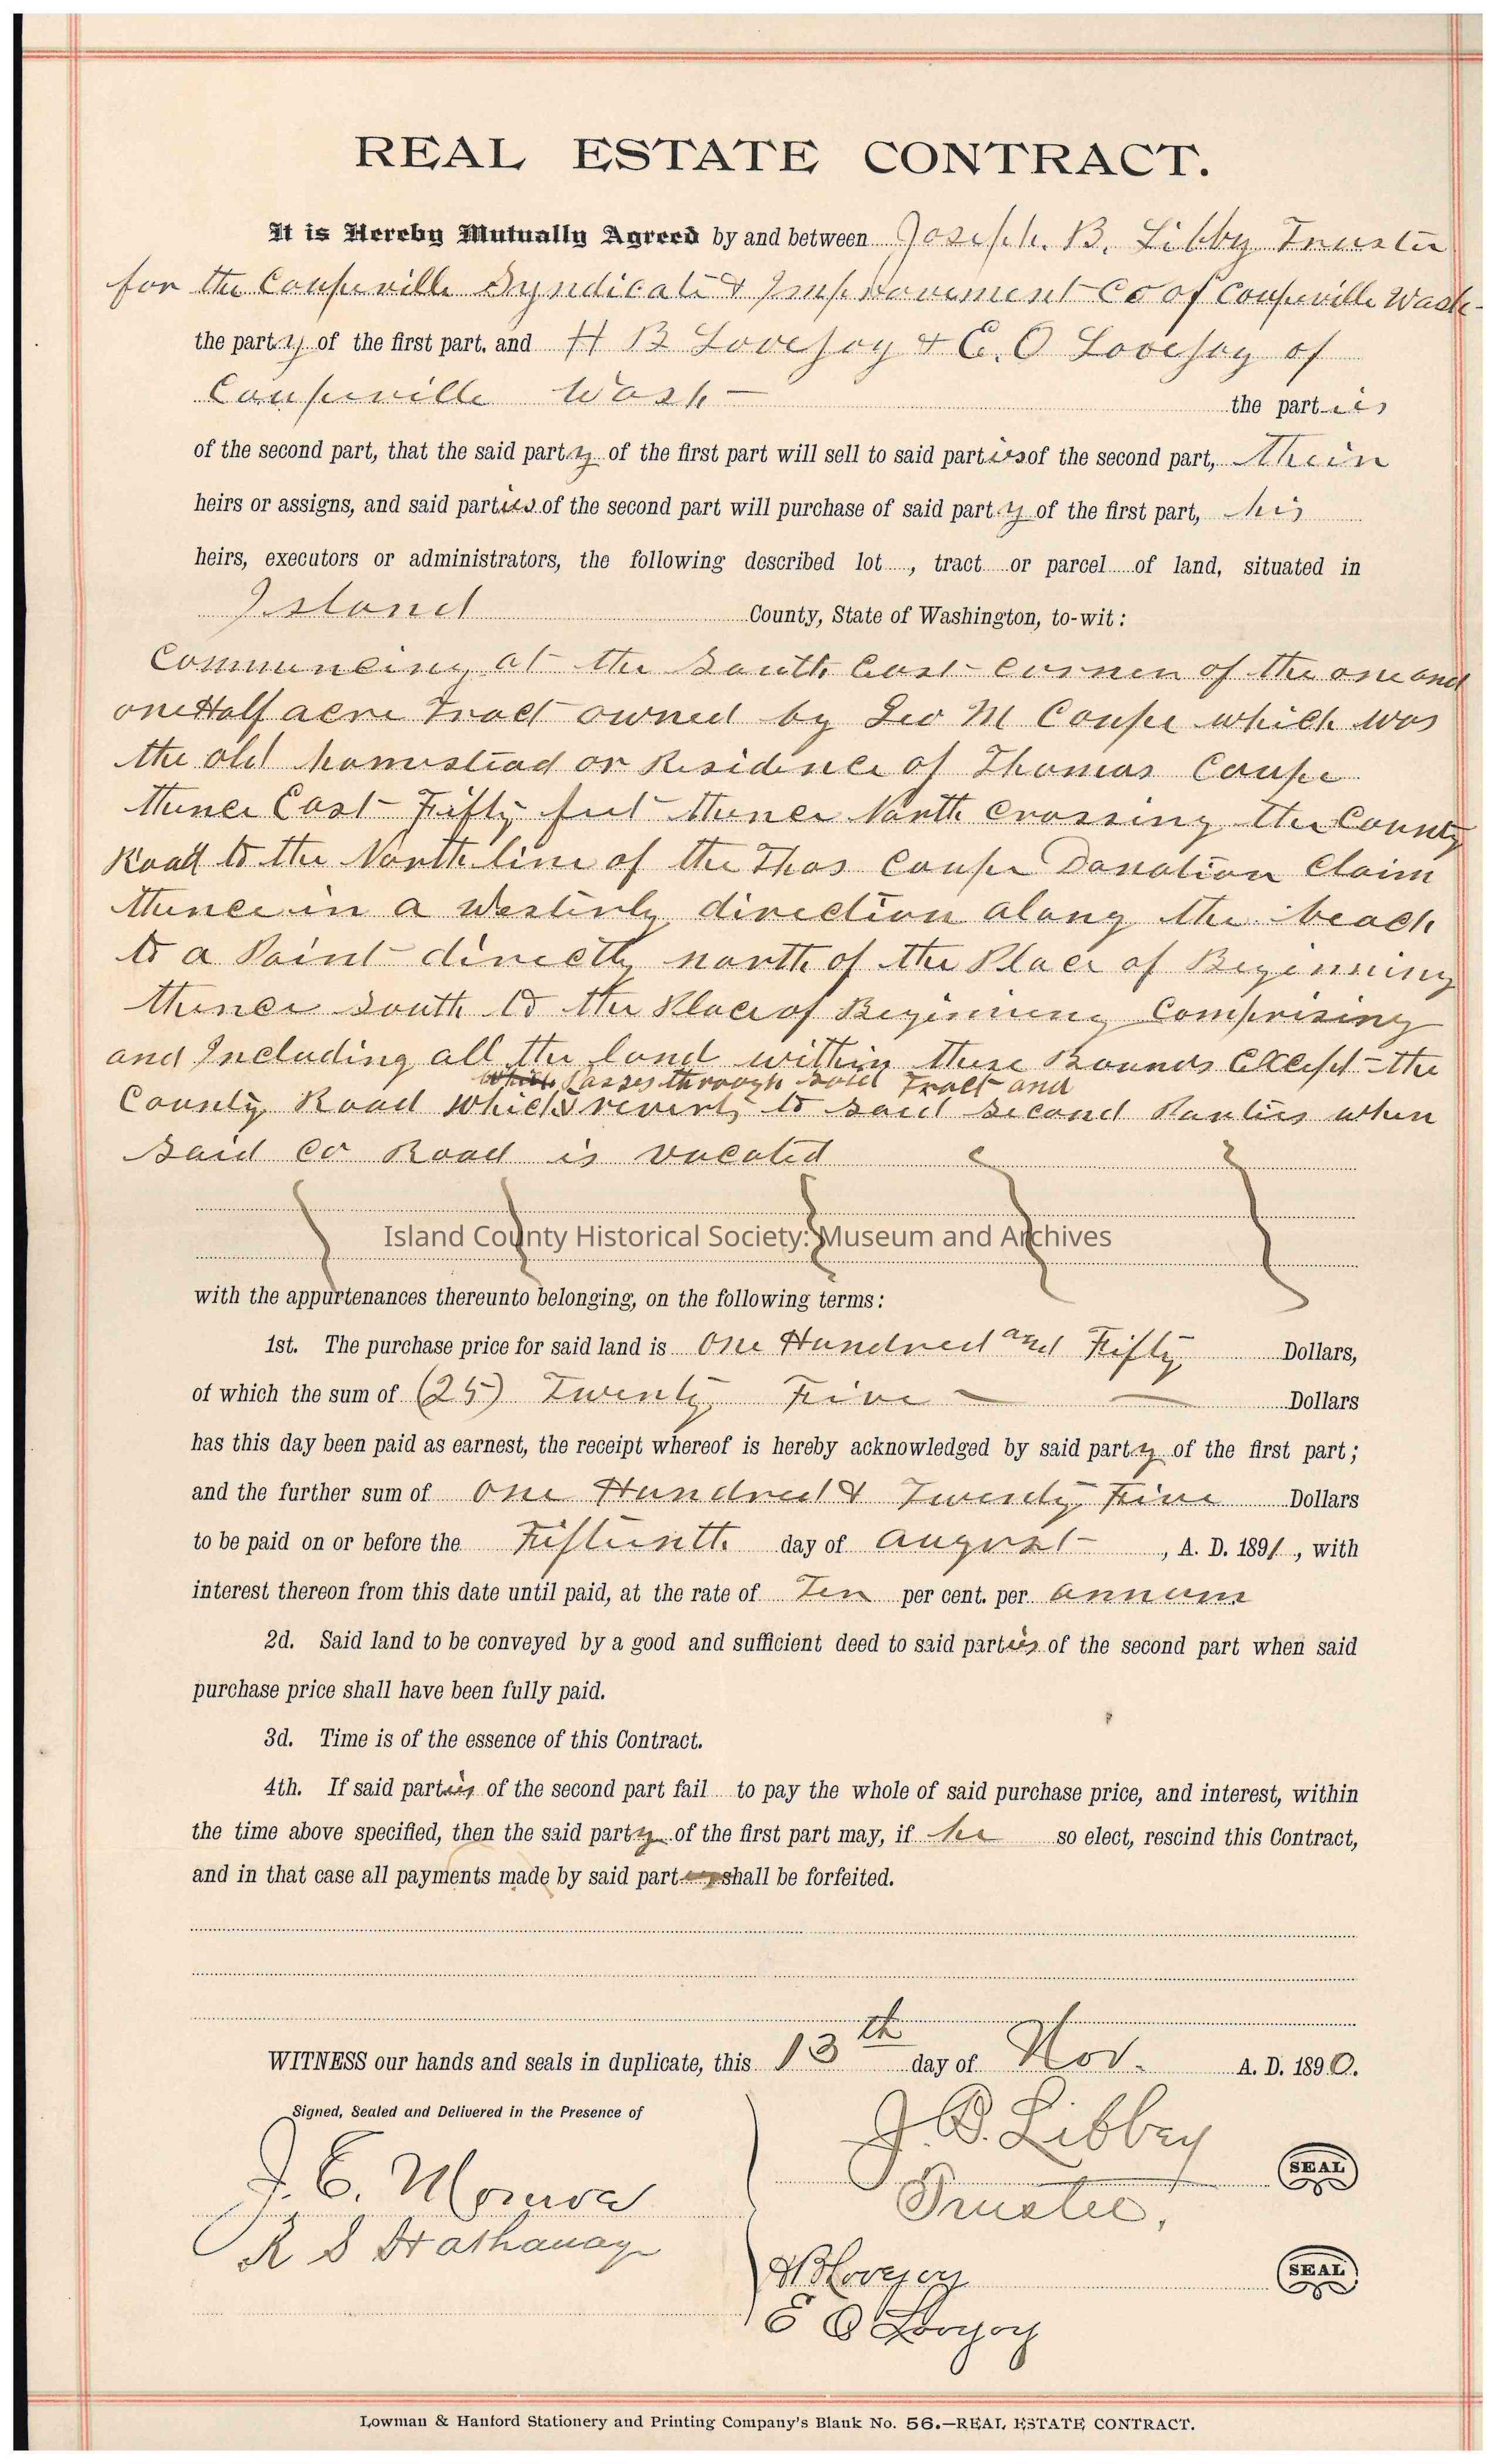 REAL ESTATE CONTRACT.
It is Hereby Mutually Agreed by and between Joseph. B. Libby Trustee
for the Coupeville Syndicate & Improvement Co of Coupeville Wash-
the party of the first part, and H B Lovejoy & E. O Lovejoy of
Coupeville Wash — the parties
of the second part, that the said party of the first part will sell to said parties of the second part, their
heirs or assigns, and said parties of the second part will purchase of said party of the first part, his
heirs, executors or administrators, the following described lot , tract or parcel of land, situated in
Island County, State of Washington, to-wit:
Commencing at the South East corner of the one and
one Half acre Tract owned by Geo M Coupe which was
the old homestead or Residence of Thomas Coupe
thence East Fifty feet thence North crossing the County
Road to the North line of the Thos Coupe Donation Claim
thence in a Westerly direction along the beach
to a Point directly north of the Place of Beginning
thence South to the Place of Beginning Comprising
and Including all the land within these Bounds Except the
passes through said Tract and
County Road which reverts to said second Parties when
said Co Road is vacated
Island County Historical Society: Museum and Archives
with the appurtenances thereunto belonging, on the following terms:
1st. The purchase price for said land is One Hundred and Fifty Dollars,
of which the sum of (25) Twenty Five — — Dollars
has this day been paid as earnest, the receipt whereof is hereby acknowledged by said party of the first part;
and the further sum of One Hundred & Twenty Five Dollars
to be paid on or before the Fifteenth day of August , A. D. 1891 , with
interest thereon from this date until paid, at the rate of Ten per cent. per annum
2d. Said land to be conveyed by a good and sufficient deed to said parties of the second part when said
purchase price shall have been fully paid.
3d. Time is of the essence of this Contract.
4th. If said parties of the second part fail to pay the whole of said purchase price, and interest, within
the time above specified, then the said party of the first part may, if he so elect, rescind this Contract,
and in that case all payments made by said part shall be forfeited.
WITNESS our hands and seals in duplicate, this 13th day of Nov. A. D. 1890.
Signed, Sealed and Delivered in the Presence of
J. B. Libbey
SEAL
J. E.
Trustee,
R S Hathaway
H B Lovejoy
SEAL
E O Lovejoy
Lowman & Hanford Stationery and Printing Company's Blank No. 56.—REAL ESTATE CONTRACT.